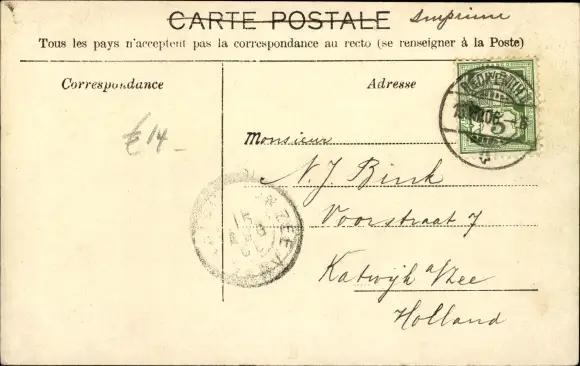 CARTE POSTALE Imprimé
Tous les pays n'acceptent pas la correspondance au recto (se renseigner à la Poste)
Correspondance
Adresse
5
€ 14 -
Monsieur
N. J. Bink
Voorstraat 7
Katwijk a/Zee
Holland
ZEE